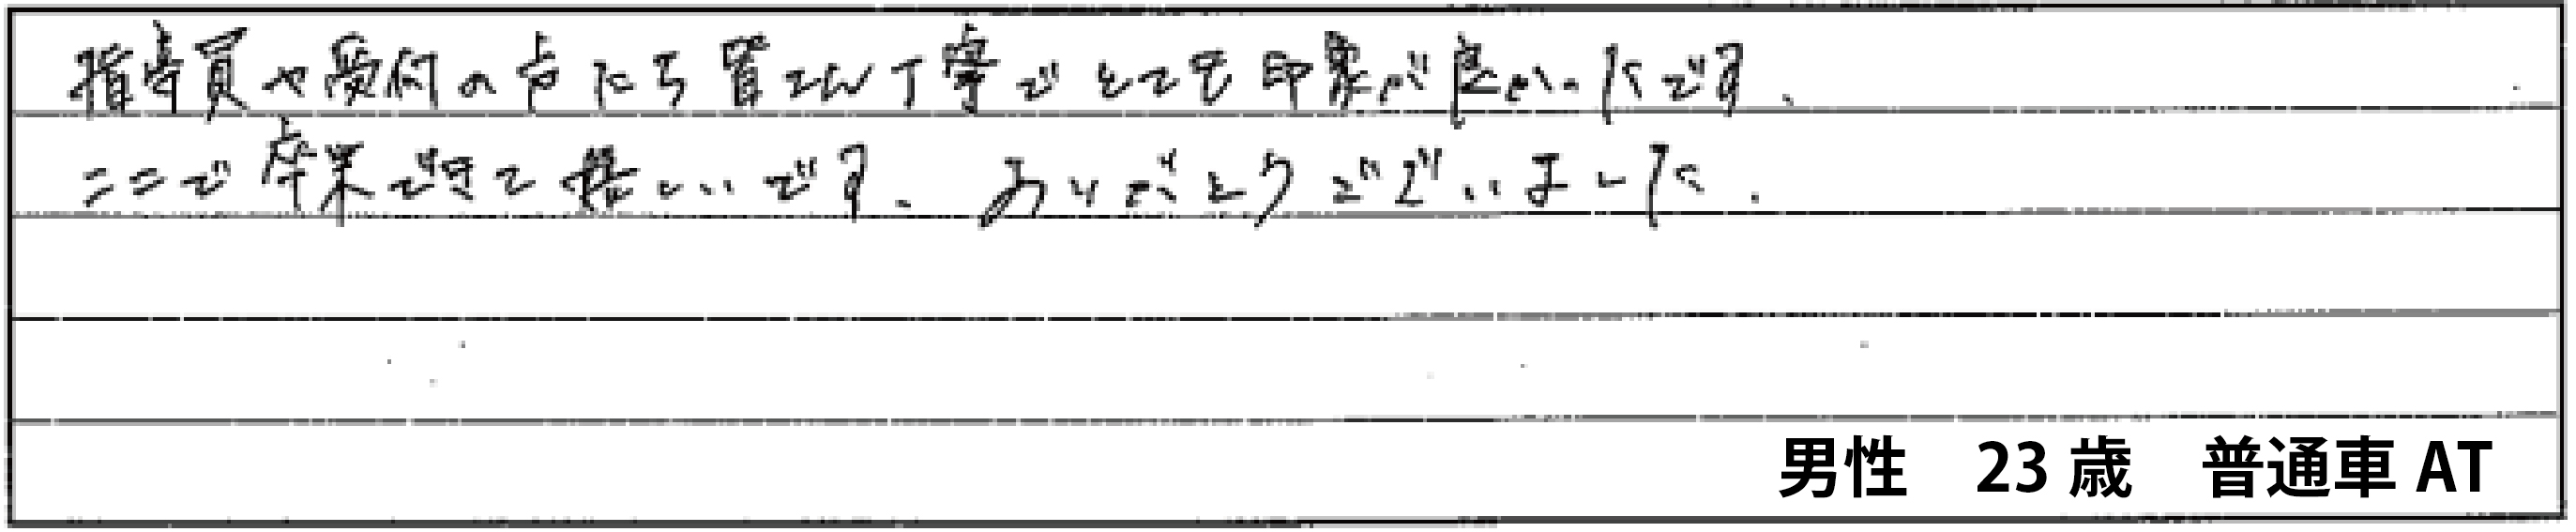 指導員や受付の方たち皆さん丁寧でとても印象が良かったです、
ここで卒業できて嬉しいです、ありがとうございました.
男性 23歳 普通車AT